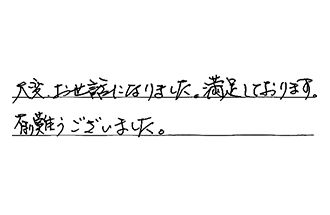 大変、お世話になりました。満足しております。
有難うございました。